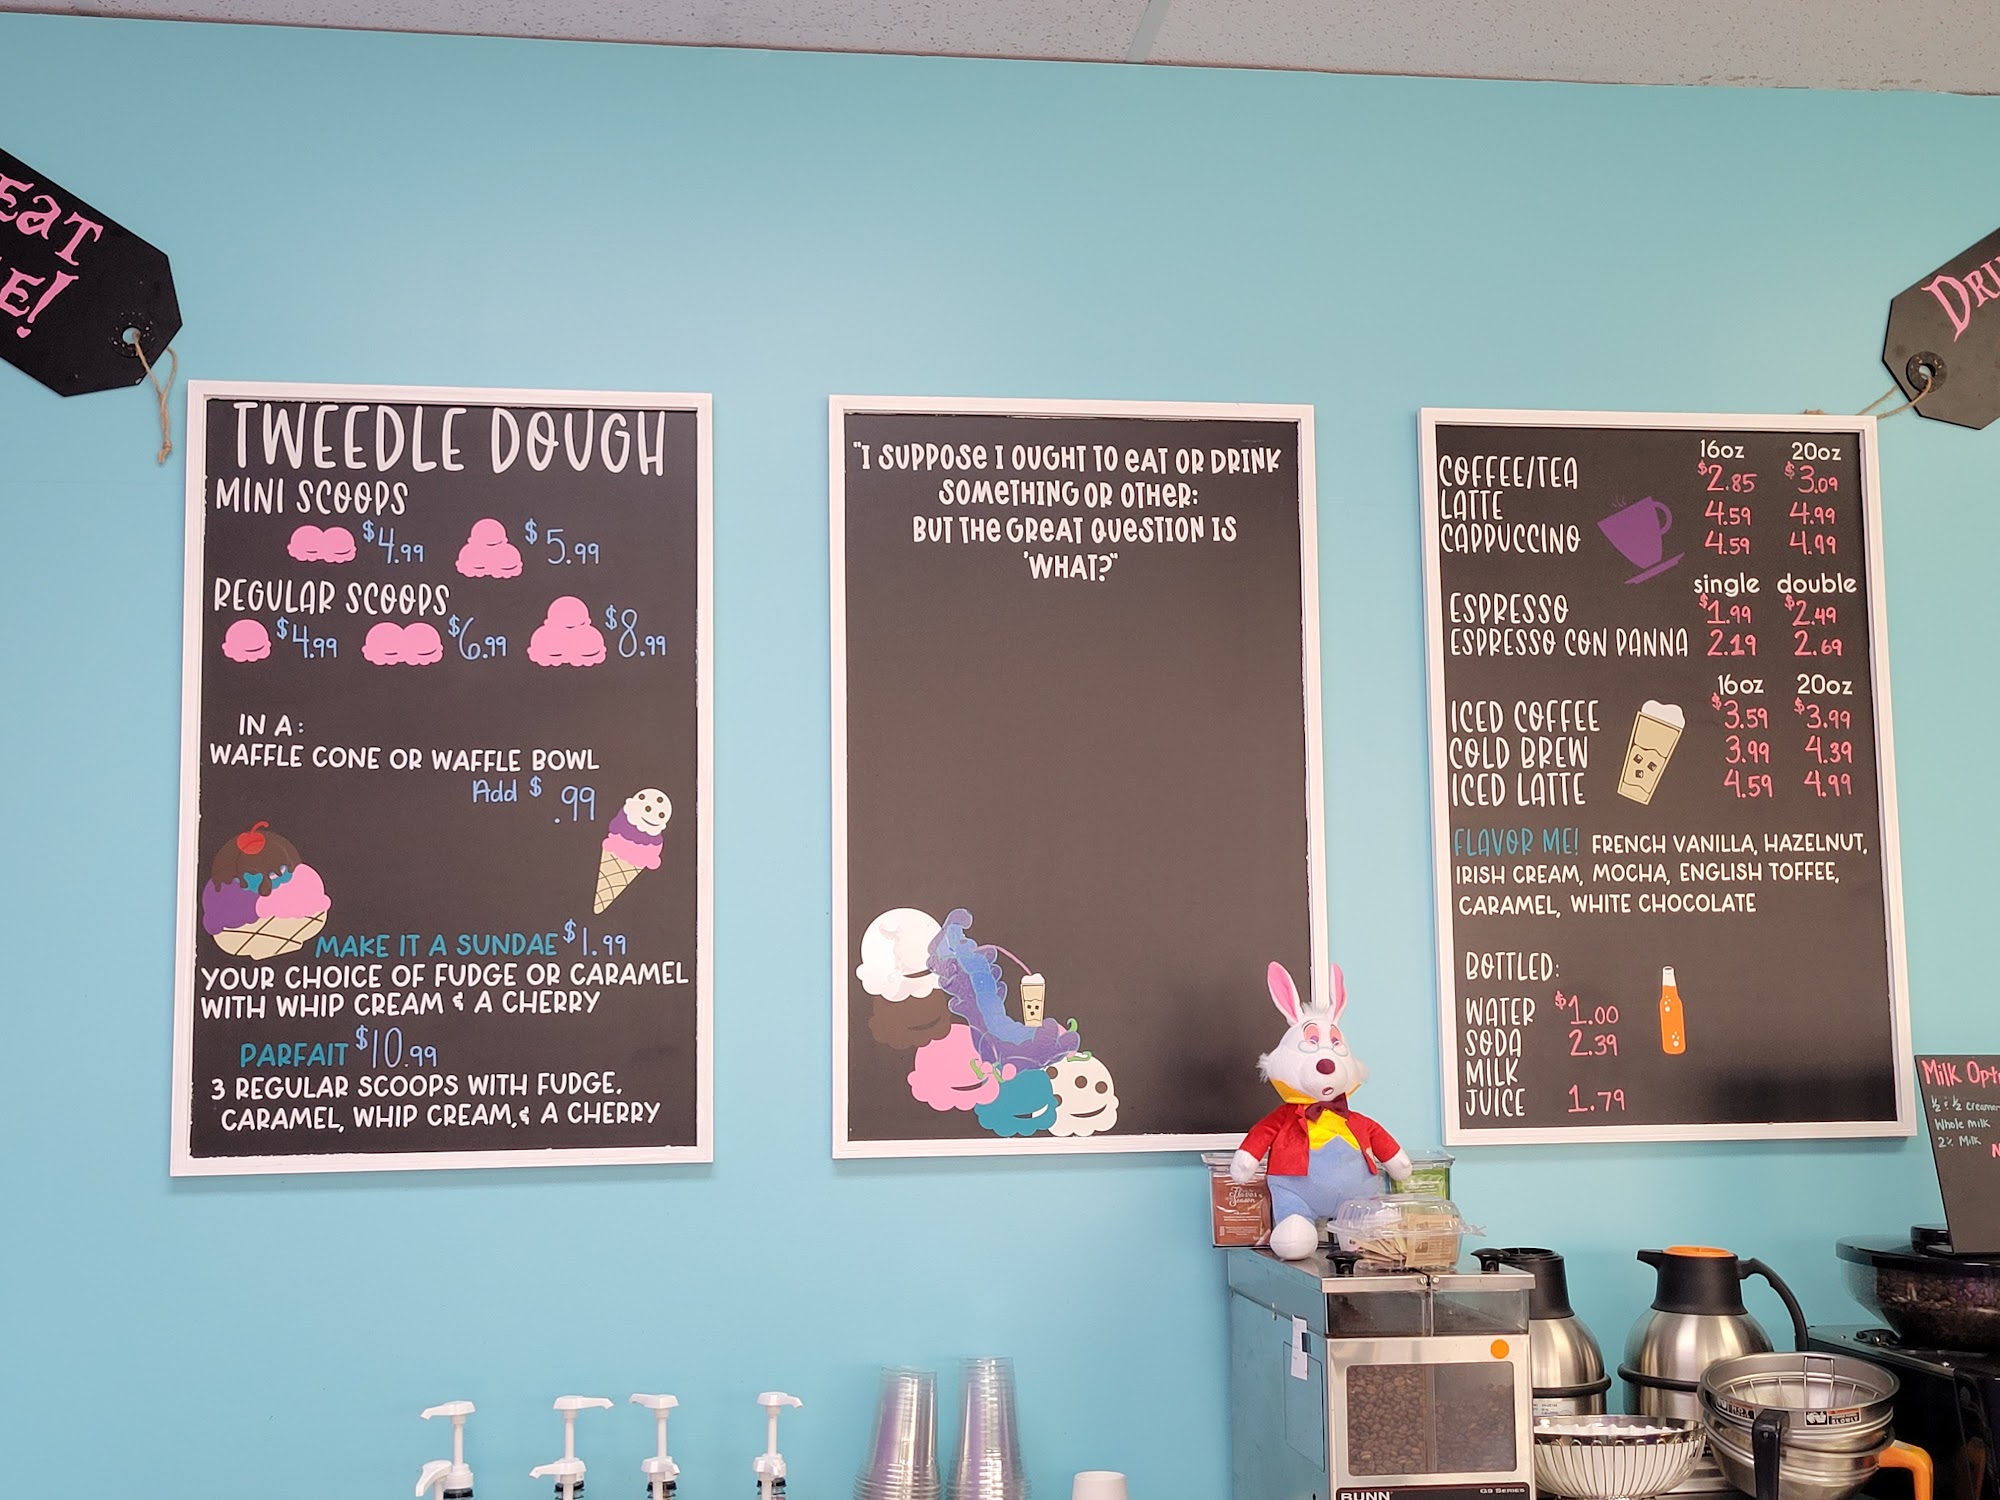 EAT
E!
TWEEDLE DOUGH
MINI SCOOPS
$4.99 $5.99
REGULAR SCOOPS
$4.99 $6.99 $8.99
IN A:
WAFFLE CONE OR WAFFLE BOWL
Add $.99
MAKE IT A SUNDAE $1.99
YOUR CHOICE OF FUDGE OR CARAMEL
WITH WHIP CREAM & A CHERRY
PARFAIT $10.99
3 REGULAR SCOOPS WITH FUDGE,
CARAMEL, WHIP CREAM, & A CHERRY
"I SUPPOSE I OUGHT TO EAT OR DRINK
SOMETHING OR OTHER:
BUT THE GREAT QUESTION IS
'WHAT?"
DRI
16oz 20oz
COFFEE/TEA $2.85 $3.09
LATTE 4.59 4.99
CAPPUCCINO 4.59 4.99
single double
ESPRESSO $1.99 $2.49
ESPRESSO CON PANNA 2.19 2.69
16oz 20oz
ICED COFFEE $3.59 $3.99
COLD BREW 3.99 4.39
ICED LATTE 4.59 4.99
FLAVOR ME! FRENCH VANILLA, HAZELNUT,
IRISH CREAM, MOCHA, ENGLISH TOFFEE,
CARAMEL, WHITE CHOCOLATE
BOTTLED:
WATER $1.00
SODA 2.39
MILK
JUICE 1.79
Milk Opt
½ & ½ creamer
Whole Milk
2% Milk
N
BUNN G9 SERIES